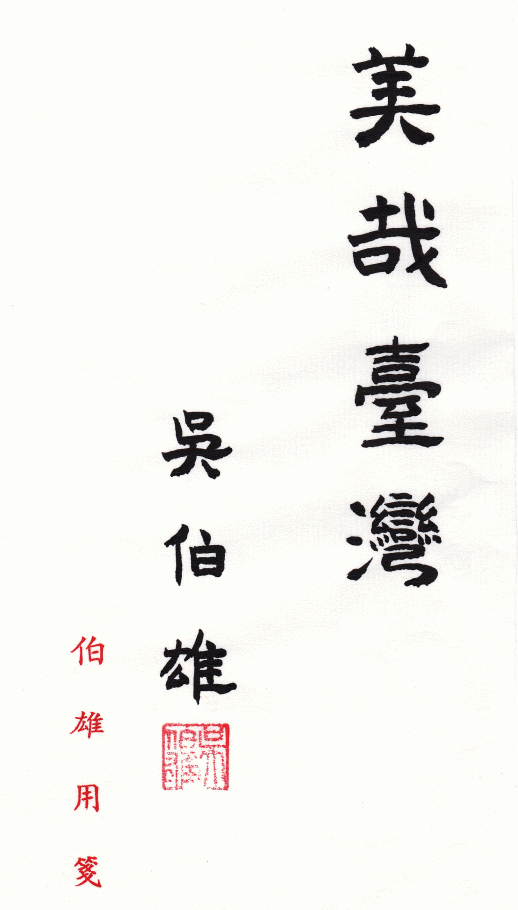 美哉臺灣
吳伯雄
吳伯雄
伯雄用箋